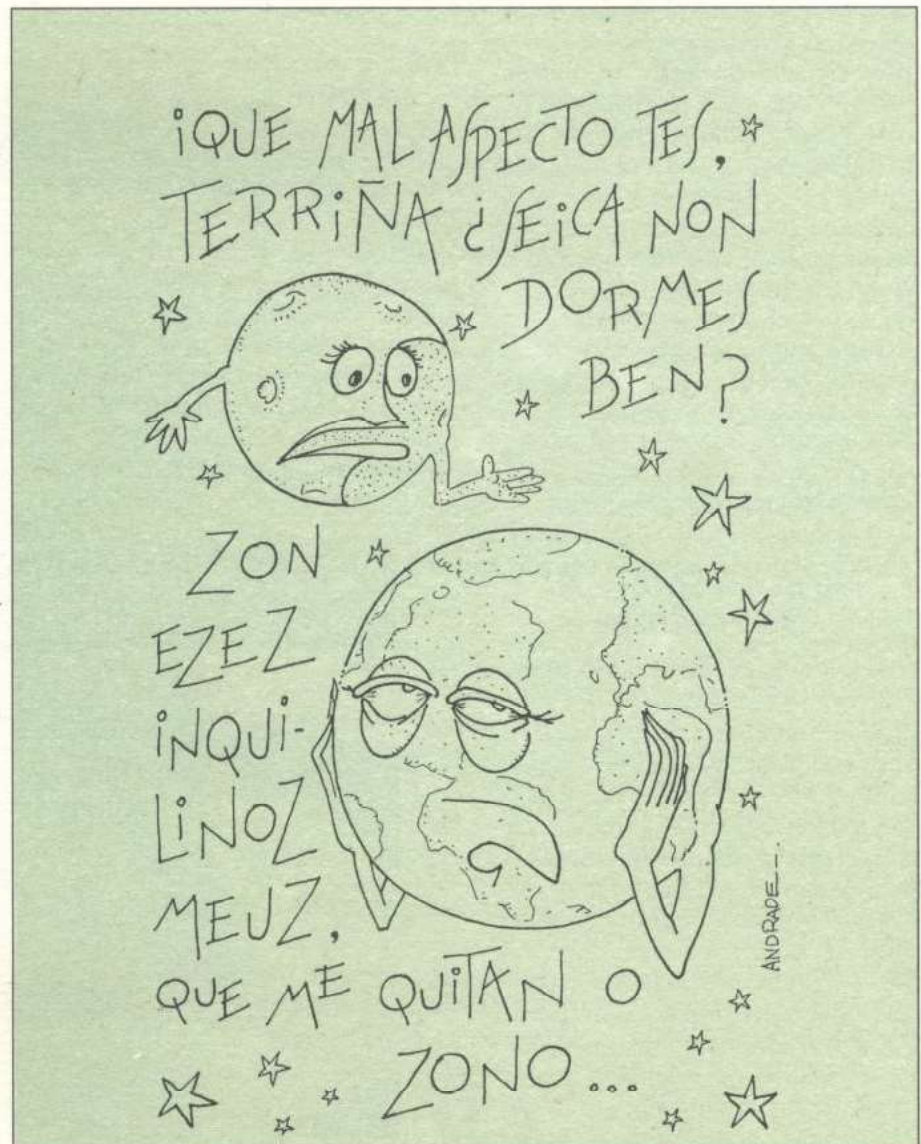 ¡QUE MAL ASPECTO TES,
TERRIÑA ¿SEICA NON
DORMES
BEN?
ZON
EZEZ
INQUI-
LINOZ
MEUZ,
QUE ME QUITAN O
ZONO...
ANDRADE_.